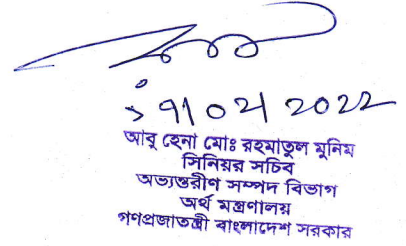 আবু হেনা মোঃ রহমাতুল মুনিম
সিনিয়র সচিব
অভ্যন্তরীণ সম্পদ বিভাগ
অর্থ মন্ত্রণালয়
গণপ্রজাতন্ত্রী বাংলাদেশ সরকার